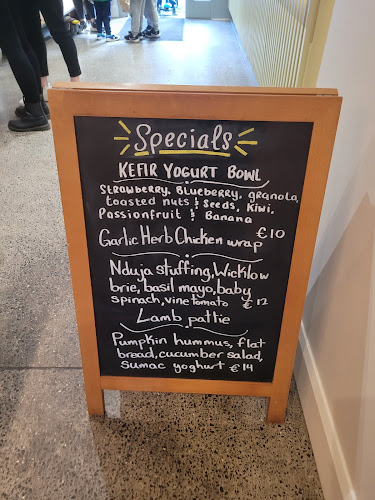 Specials
KEFIR YOGURT BOWL
Strawberry, Blueberry, granola,
toasted nuts & Seeds, Kiwi,
Passionfruit & Banana
€10
Garlic Herb Chicken wrap
Nduja stuffing, Wicklow
brie, basil mayo, baby
spinach, vine tomato €12
Lamb pattie
Pumpkin hummus, flat
bread, cucumber salad,
sumac yoghurt €14